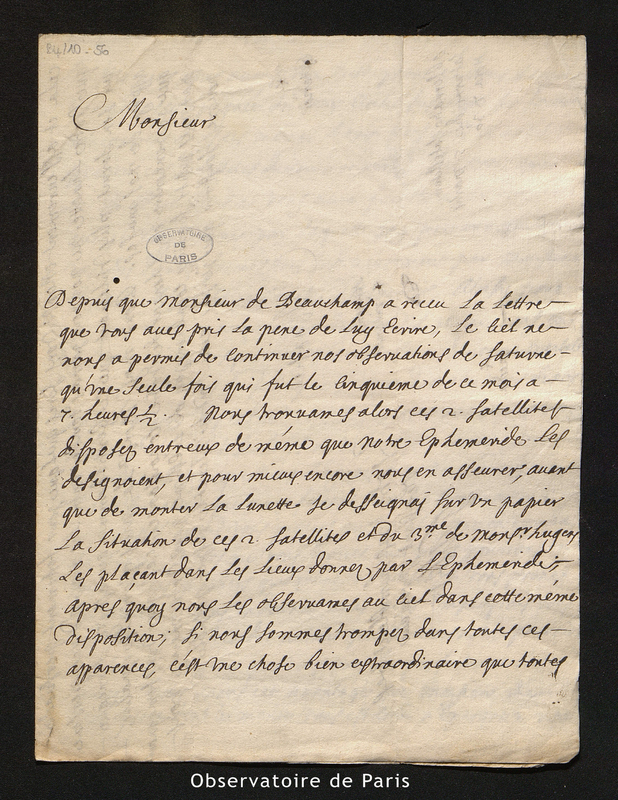 Monsieur
OBSERVATOIRE
DE
PARIS
Depuis que monsieur de Beauchamp a receu La Lettre
que vous aves pris La pene de Luy Ecrire, Le Ciel ne
nous a permis de Continuer nos observations de Saturne
qu'vne Seule fois qui fut le Cinquieme de ce mois a
7. heures ½. Nous trouuames alors ces 2. Satellites
disposez entreux de méme que notre Ephemeride Les
designoient, et pour mieux encore nous en asseurer, auant
que de monter La Lunette je desseignaj Sur vn papier
La Situation de ces 2. Satellites et du 3.me de Mons.r hugens
Les plaçant dans Les Lieux donnez par L'Ephemeride,
apres quoy nous Les observames au Ciel dans cette méme
disposition; si nous sommes trompez dans toutes ces
apparences, c'est vne chose bien extraordinaire que toutes
Observatoire de Paris